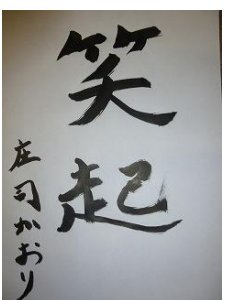 笑起
庄司かおり